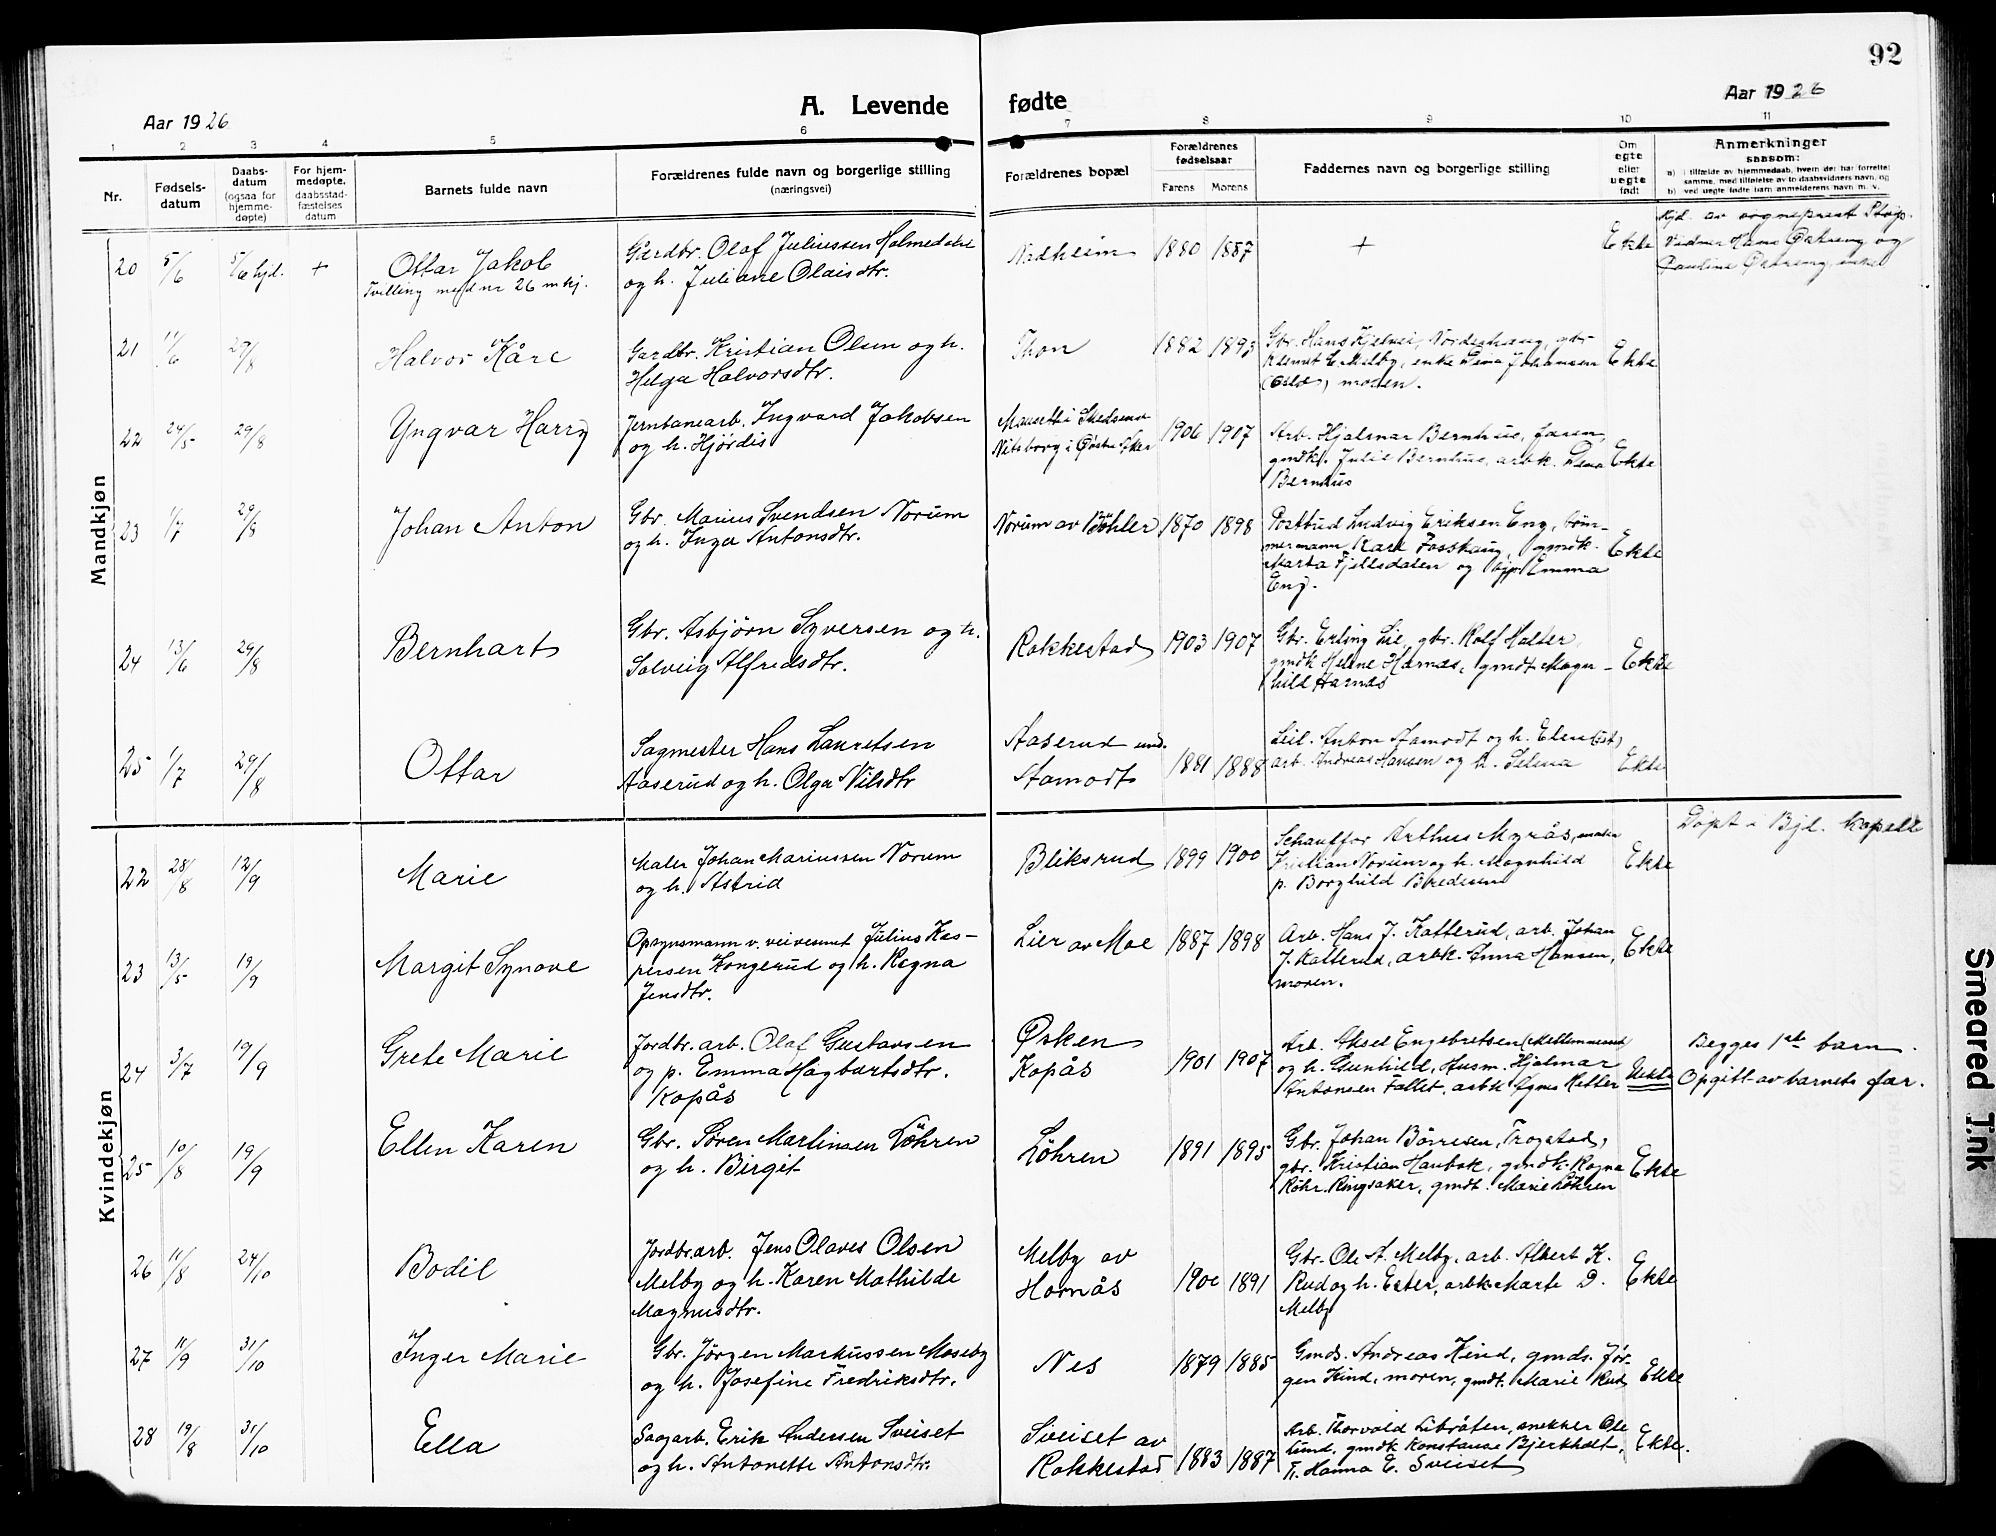 92
Aar 1926
A. Levende fødte
Aar 1926
1 2 3 4 5 6 7 8 9 10 11
Nr.
Fødsels-
datum
Daabs-
datum
(ogsaa for
hjemme-
døpte)
For hjem-
medøpte,
daabsstad-
fæstelses
datum
Barnets fulde navn
Forældrenes fulde navn og borgerlige stilling
(næringsvei)
Forældrenes bopæl
Forældrenes
fødselsaar
Farens Morens
Faddernes navn og borgerlige stilling
Om
egte
eller
uegte
født
Anmerkninger
saasom:
a) i tilfælde av hjemmedaab, hvem der har forrettet
samme, med tilføielse av to daabsvidners navn, og
b) ved uegte fødte barn anmelderens navn m. v.
Mandkjøn
20 5/6 5/6 hjd. +
Ottar Jakob
Tvilling med nr 26 m kj.
Gardbr. Olaf Juliussen Holmedahl
og h. Juliane Olaisdtr.
Nadheim 1880 1887 + Ekte
Hjd. av sogneprest
Vidner Hans Østreng og
Pauline Østreng, enke
21 11/6 29/8
Halvor Kåre
Gardbr. Kristian Olsen og h.
Helga Halvorsdtr.
Thon 1882 1893
Gbr. Hans Kjelsei, Nordenhaug, gbr
Klemet E. Melby, enke Lena Johansen
(Oslo), moren.
Ekte
22 24/5 29/8
Yngvar Harry
Jernbanearb. Ingvard Jakobsen
og h. Hjørdis
1906 1907
Arb. Hjalmar Bernhus, faren,
gmdk. Julie Bernhus, arbk. Lena
Bernhus
Ekte
23 1/7 29/8
Johan Anton
Gbr. Marius Svendsen Norum
og h. Inga Antonsdtr.
Norum av Bøhler 1870 1898
Postbud Ludvig Eriksen Eng, tøm-
mermann Karl Fosshaug, gmdk.
Marta Fjellsdalen og Emma
Eng.
Ekte
24 13/6 29/8
Bernhart
Gbr. Asbjørn Syversen og h.
Solveig Alfredsdtr.
Rakkestad 1903 1907
Gbr. Erling Lie, gbr. Rolf Holter,
gmdk Helene Harnæs, gmdt. Magn-
hild Harnæs
Ekte
25 1/7 29/8
Ottar
Sagmester Hans Lauretsen
Aaserud og h. Olga Nilsdtr
Aaserud und.
Aamodt
1881 1888
Leil. Anton Aamodt og h. Elen
arb. Andreas Hansen og h. Selma
Ekte
Kvindekjøn
22 28/8 12/9
Marie
Maler Johan Mariussen Norum
og h. Astrid
Bliksrud 1899 1900
Schauffør Arthur Myrås, maler
Kristian Norum og h. Magnhild
p. Borghild Bredesen
Ekte
Døpt i Bjl. kapell
23 13/5 19/9
Margit Synøve
Opsynsmann v. veivesenet Julius Kas-
persen Kongerud og h. Regna
Jensdtr.
Lier av Moe 1887 1898
Arb. Hans J. Katterud, arb. Johan
J. Katterud, arbk. Anna Hansen,
moren.
Ekte
24 3/7 19/9
Grete Marie
Jordbr. arb. Olaf Gustavsen
og p. Emma Hagbartsdtr.
Kopås
Ørken
Kopås
1901 1907
Arb. Aksel Engebretsen
og h. Gunhild, Husm. Hjalmar
Antonsen Fallet, arbk Agnes Holler
Uekte
Begges 1ste barn.
Opgitt av barnets far.
25 10/8 19/9
Ellen Karen
Gbr. Søren Martinsen Løhren
og h. Birgit
Løhren 1891 1895
Gbr. Johan Børresen, Trøgstad,
gbr. Kristian Haubak, gmdk. Ragna
Røhr, Ringsaker, gmdt. Marie Løhren
Ekte
26 11/8 24/10
Bodil
Jordbr. arb. Jens Olaves Olsen
Melby og h. Karen Mathilde
Magnusdtr.
Melby av
Hornås
1891
Gbr. Ole A. Melby, arb. Albert K.
Rud og h. Ester, arbk. Marte D.
Melby
Ekte
27 11/9 31/10
Inger Marie
Gbr. Jørgen Markussen Moseby
og h. Josefine Fredriksdtr.
Nes 1879 1885
Gmds. Andreas Kind, gmds. Jør-
gen Kind, moren, gmdt. Marie Rud
Ekte
28 19/8 31/10
Ella
Sagarb. Erik Andersen Sveiset
og h. Antonette Antonsdtr.
Sveiset av
Rakkestad
1883 1887
Arb. Thorvald Libråten, snekker Ole
Lund, gmdk Konstanse Bjerkholt,
fr. Hanna E. Sveiset
Ekte.
Smeared Ink